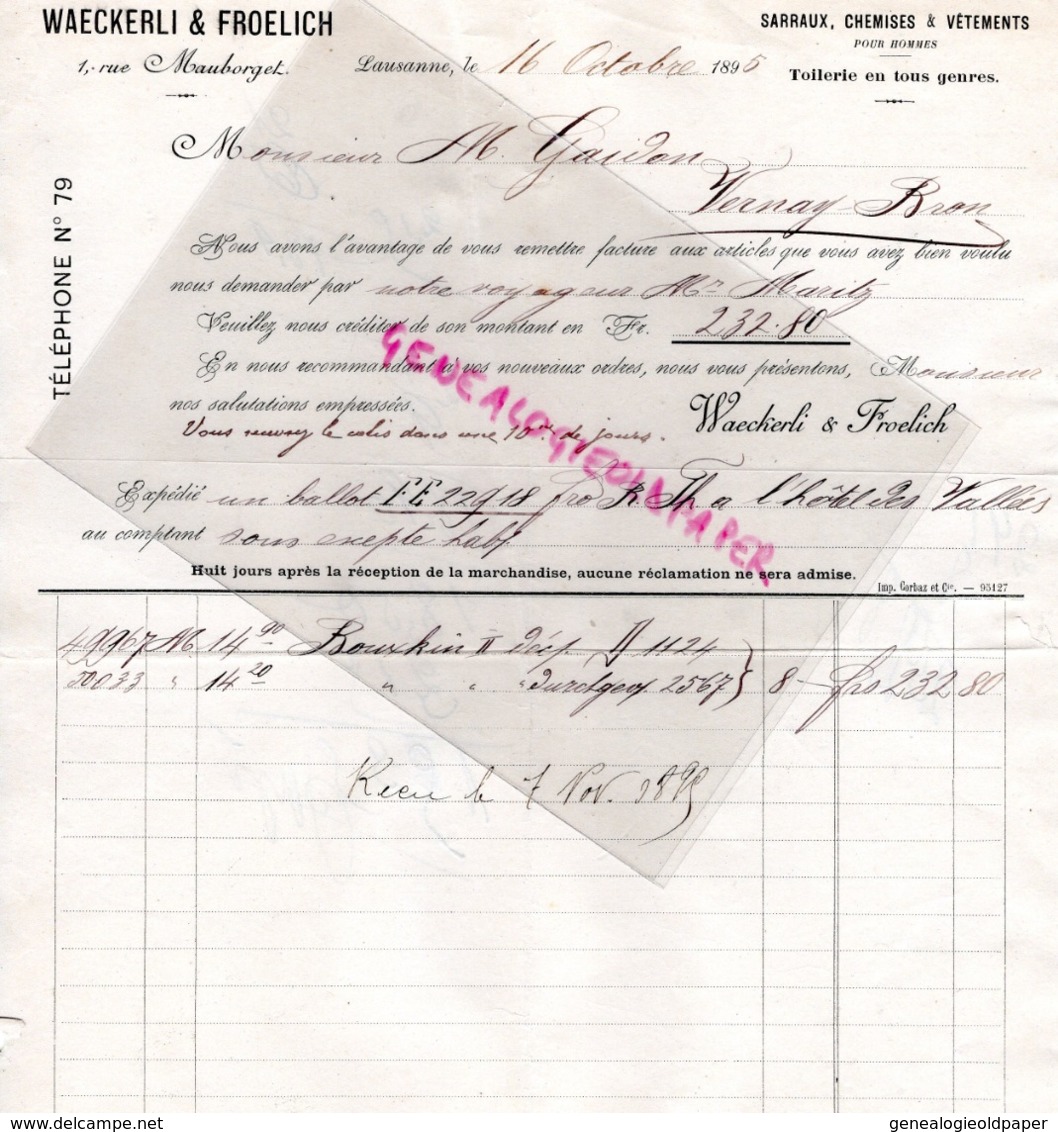 WAECKERLI & FROELICH
1, rue Mauborget.
SARRAUX, CHEMISES & VÊTEMENTS
POUR HOMMES
Toilerie en tous genres.
Lausanne, le 16 Octobre 1895
Monsieur M. Gaidon
Vernay Bron
TÉLÉPHONE N° 79
Nous avons l'avantage de vous remettre facture aux articles que vous avez bien voulu
nous demander par notre voyageur Mr Maritz
Veuillez nous créditer de son montant en Fr. 232.80
En nous recommandant à vos nouveaux ordres, nous vous présentons, Monsieur
nos salutations empressées.
Waeckerli & Froelich
Vous recevrez le colis dans une 10ne de jours.
Expédié un ballot FE 22918 fro à l'hôtel des Vallées
au comptant sous
Huit jours après la réception de la marchandise, aucune réclamation ne sera admise.
Imp. Corbaz et Cie. — 95127
49967 M. 14 90 Bouxkin II 1124
50033 " 14 20 " " " 2567 } 8 - frs 232 80
Recu le 7 Nov. 1895
GENEALOGIEOLDPAPER
delcampe.net
genealogieoldpaper